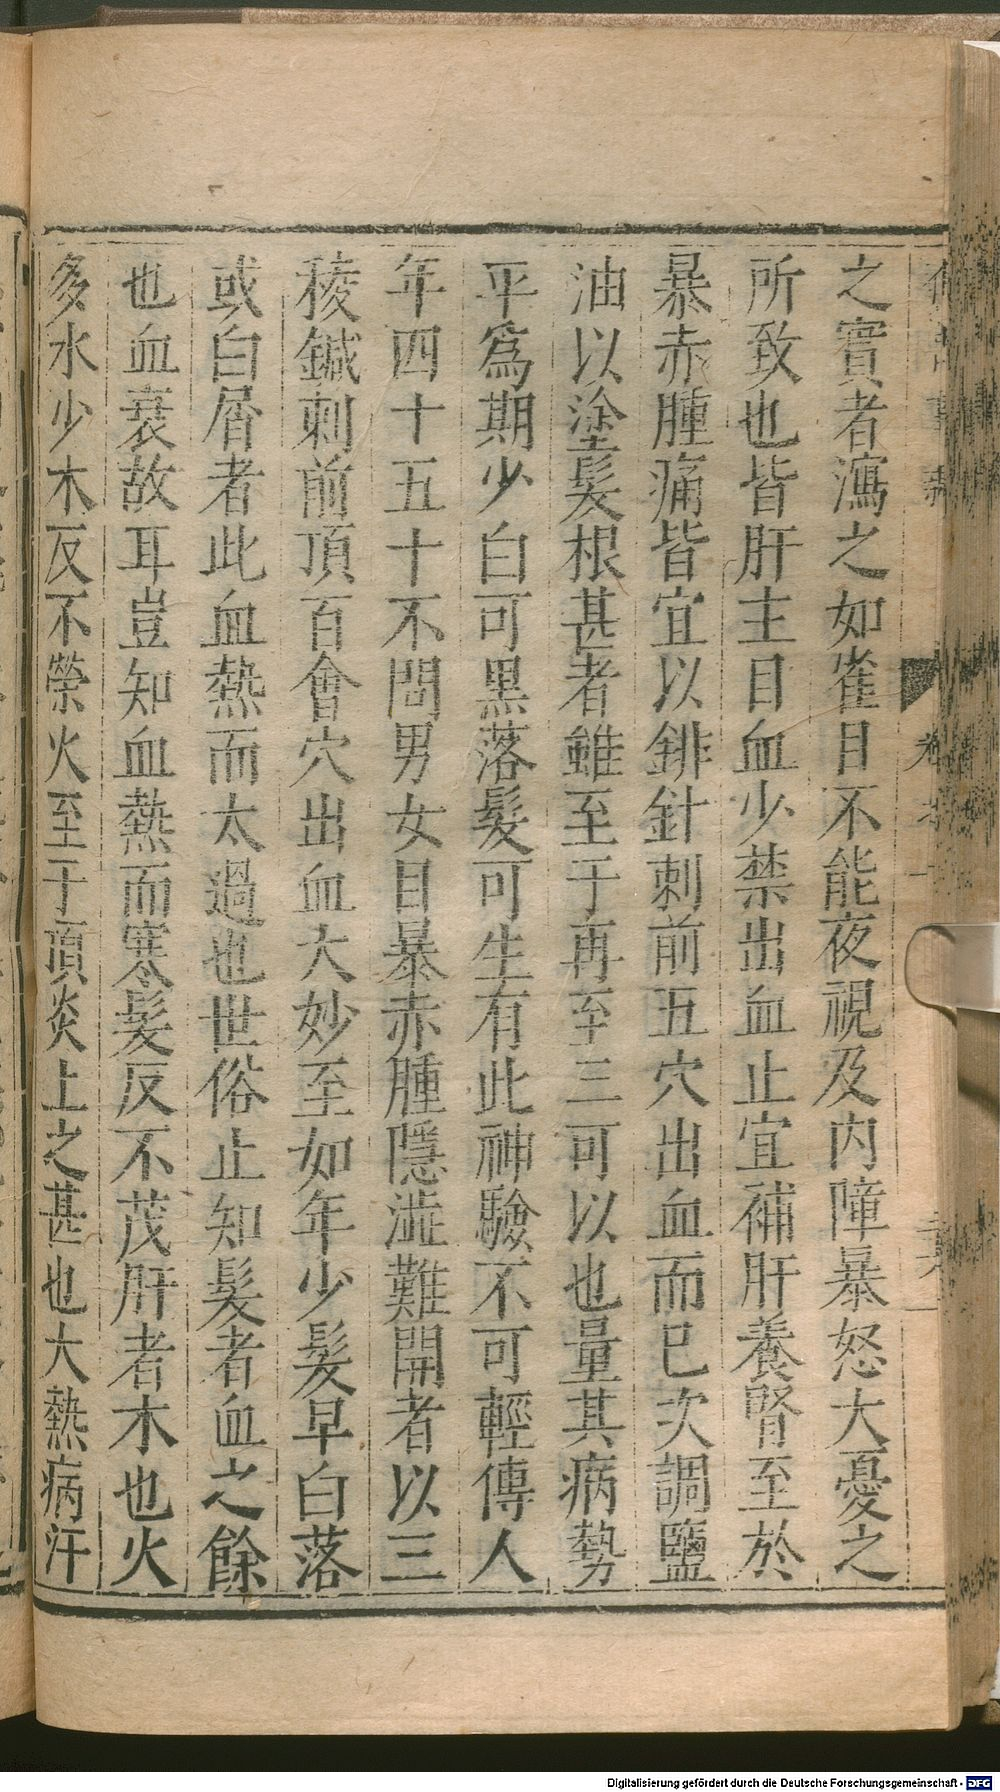 之實者瀉之如雀目不能夜視及内障暴怒大憂之
所致也皆肝主目血少禁出血止宜補肝養腎至於
暴赤腫痛皆宜以鈹針刺前五穴出血而已次調鹽
油以塗髮根甚者雖至于再至三可以也量其病勢
平為期少白可黑落髮可生有此神驗不可輕傳人
年四十五十不問男女目暴赤腫隱澁難開者以三
稜鍼刺前頂百會穴出血大妙至如年少髮早白落
或白屑者此血熱而太過也世俗止知髮者血之餘
也血衰故耳豈知血熱而寒髮反不茂肝者木也火
多水少木反不榮火至于頂炎上之甚也大熱病汗
Digitalisierung gefördert durch die Deutsche Forschungsgemeinschaft - DFG